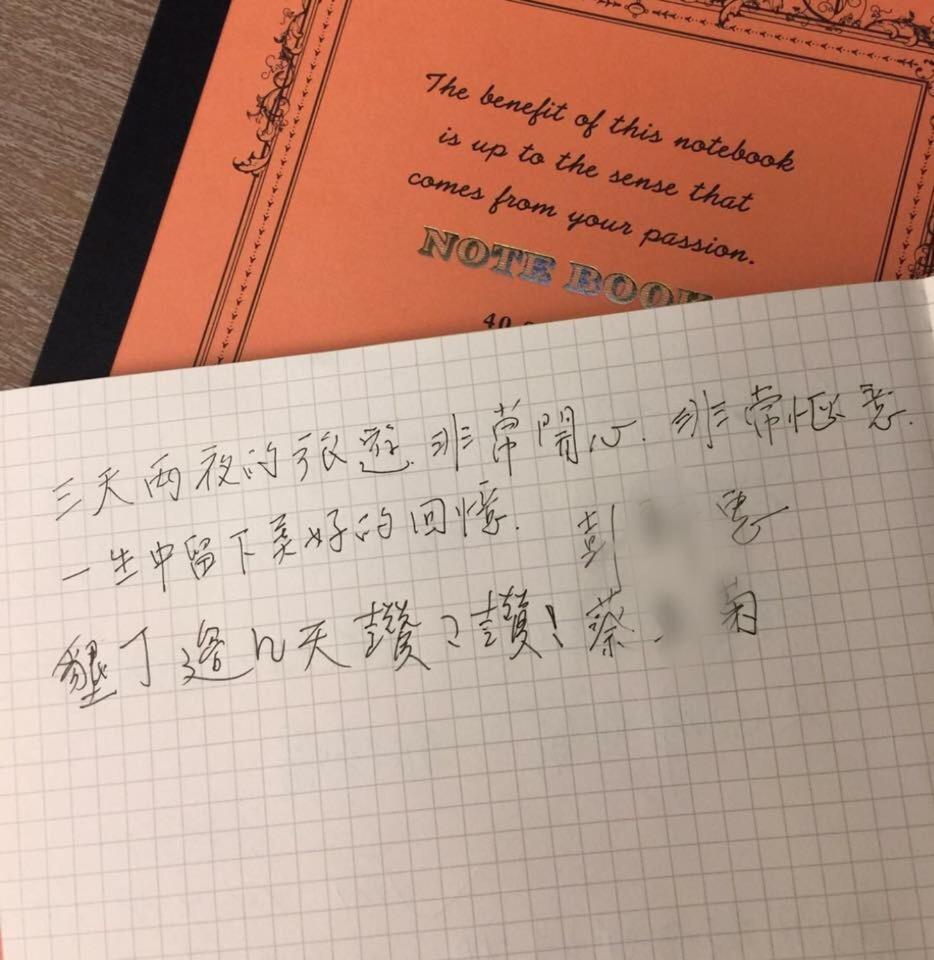 The benefit of this notebook
is up to the sense that
comes from your passion.
NOTE BOOK
40
三天兩夜的旅遊.非常開心.非常愜意.
一生中留下美好的回憶. 彭 惠
墾丁這几天讚讚! 蔡 菊